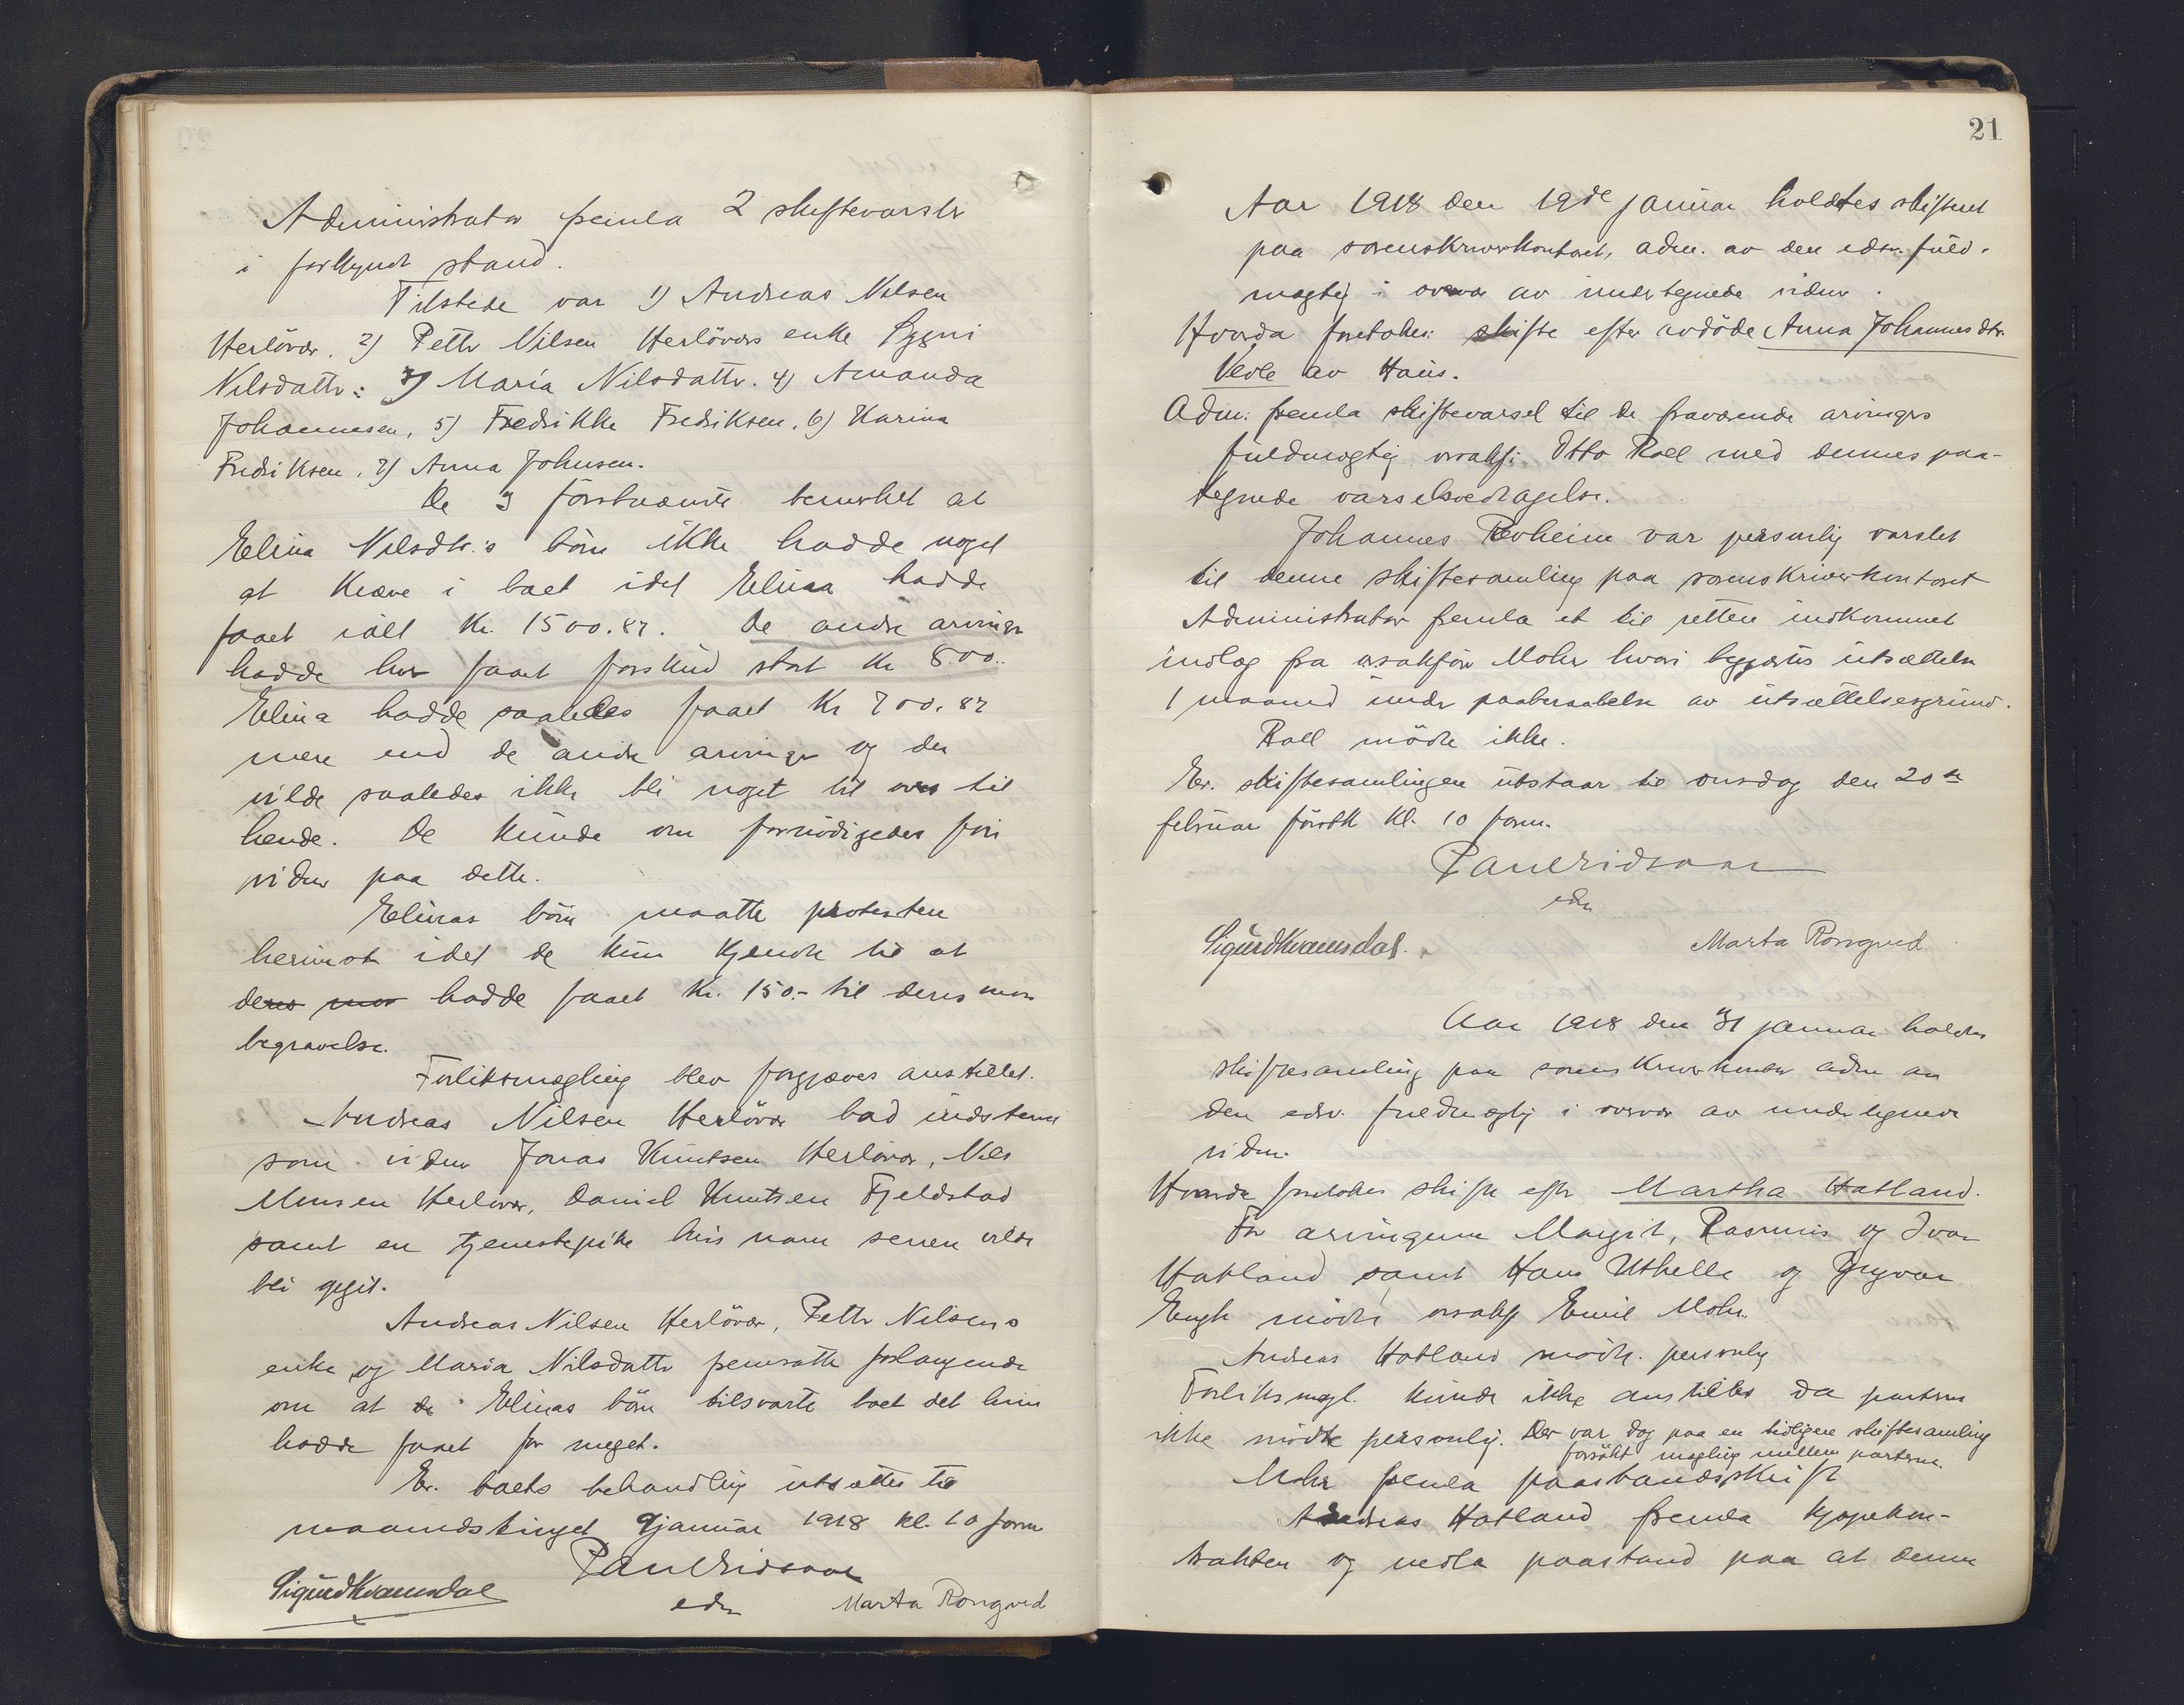 Administrator fremla 2 skiftevarsler
i forkyndt stand.
Tilstede var 1) Andreas Nilsen
Herlövær, 2) Petter Nilsen Herlöværs enke
Nilsdatter: 3) Maria Nilsdatter. 4) Amanda
Johannesen, 5) Fredrikke Fredriksen, 6) Karina
Fredriksen, 7) Anna Johnsen.
De 3 förstnævnte bemerket at
Elina Nilsdtr.s börn ikke hadde noget
at kræve i boet idet Elina hadde
faaet ialt kr. 1500.87. De andre arvinger
hadde hver faaet forskud stort kr 800..
Elina hadde saaledes faaet kr 700.87
mere end de andre arvinger og der
vilde saaledes ikke bli noget til overs til
hende. De kunde om fornödigedes före
vidner paa dette.
Elinas börn maatte protestere
herimot idet de kun kjendte til at
deres mor hadde faaet kr. 150.- til deres mors
begravelse.
Forliksmægling blev forgjæves anstillet.
Andreas Nilsen Herlövær bad indstevnt
som vidner Jonas Knutsen Herlövær, Nils
Monsen Herlövær, Daniel Knutsen Fjeldstad
samt en tjenestepike hvis navn senere vilde
bli opgit.
Andreas Nilsen Herlövær, Petter Nilsens
enke og Maria Nilsdatter fremsatte forlangende
om at de Elinas börn tilsvarte boet det hun
hadde faaet for meget.
Er. boets behandling utsættes til
maanedstinget 9 januar 1918 kl. 10 form
Paul Eridsvar
Sigurd Kvamsdal
edsv Marta Rongved
21
Aar 1918 den 19de januar holdtes skifteret
paa sorenskriverkontoret, adm. av den edsv. fuld-
mægtig i overvær av undertegnede vidner.
Hvorda foretokes: skifte efter avdöde Anna Johannesdtr.
Vevle av Haus.
Adm: fremla skiftevarsel til de fraværende arvingers
fuldmægtig overrsakf: Otto Roll med dennes paa-
tegnede varselsvedtagelse.
Johannes Revheim var personlig varslet
til denne skiftesamling paa sorenskriverkontoret
Administrator fremla et til retten indkommet
indlæg fra orsakförer Mohr hvori begjærtes utsættelse
1 maaned under paaberaabelse av utsættelsesgrund.
Roll mödte ikke.
Er. skiftesamlingen utstaar til onsdag den 20de
februar förstk kl. 10 form.
Paul Eridsvar
edsv
Sigurd Kvamsdal. Marta Rongved
Aar 1918 den 31 januar holdtes
skiftesamling paa sorenskriverkontor adm av
den edsv. fuldmægtig i overvær av undertegnede
vidner.
Hvorda foretokes skifte efter Martha Hatland.
For arvingerne Margit, Rasmus og Ivar
Hatland samt Hans Uthelle og
Engh mödte orsakf Emil Mohr.
Andreas Hatland mödte personlig
Forliksmægl. kunde ikke anstilles da parterne
ikke mödte personlig. Der var dog paa en tidligere skiftesamling
forsökt mægling mellem parterne.
Mohr fremla paastandsskrift
Andreas Hatland fremla kjöpekon-
trakten og nedla paastand paa at denne